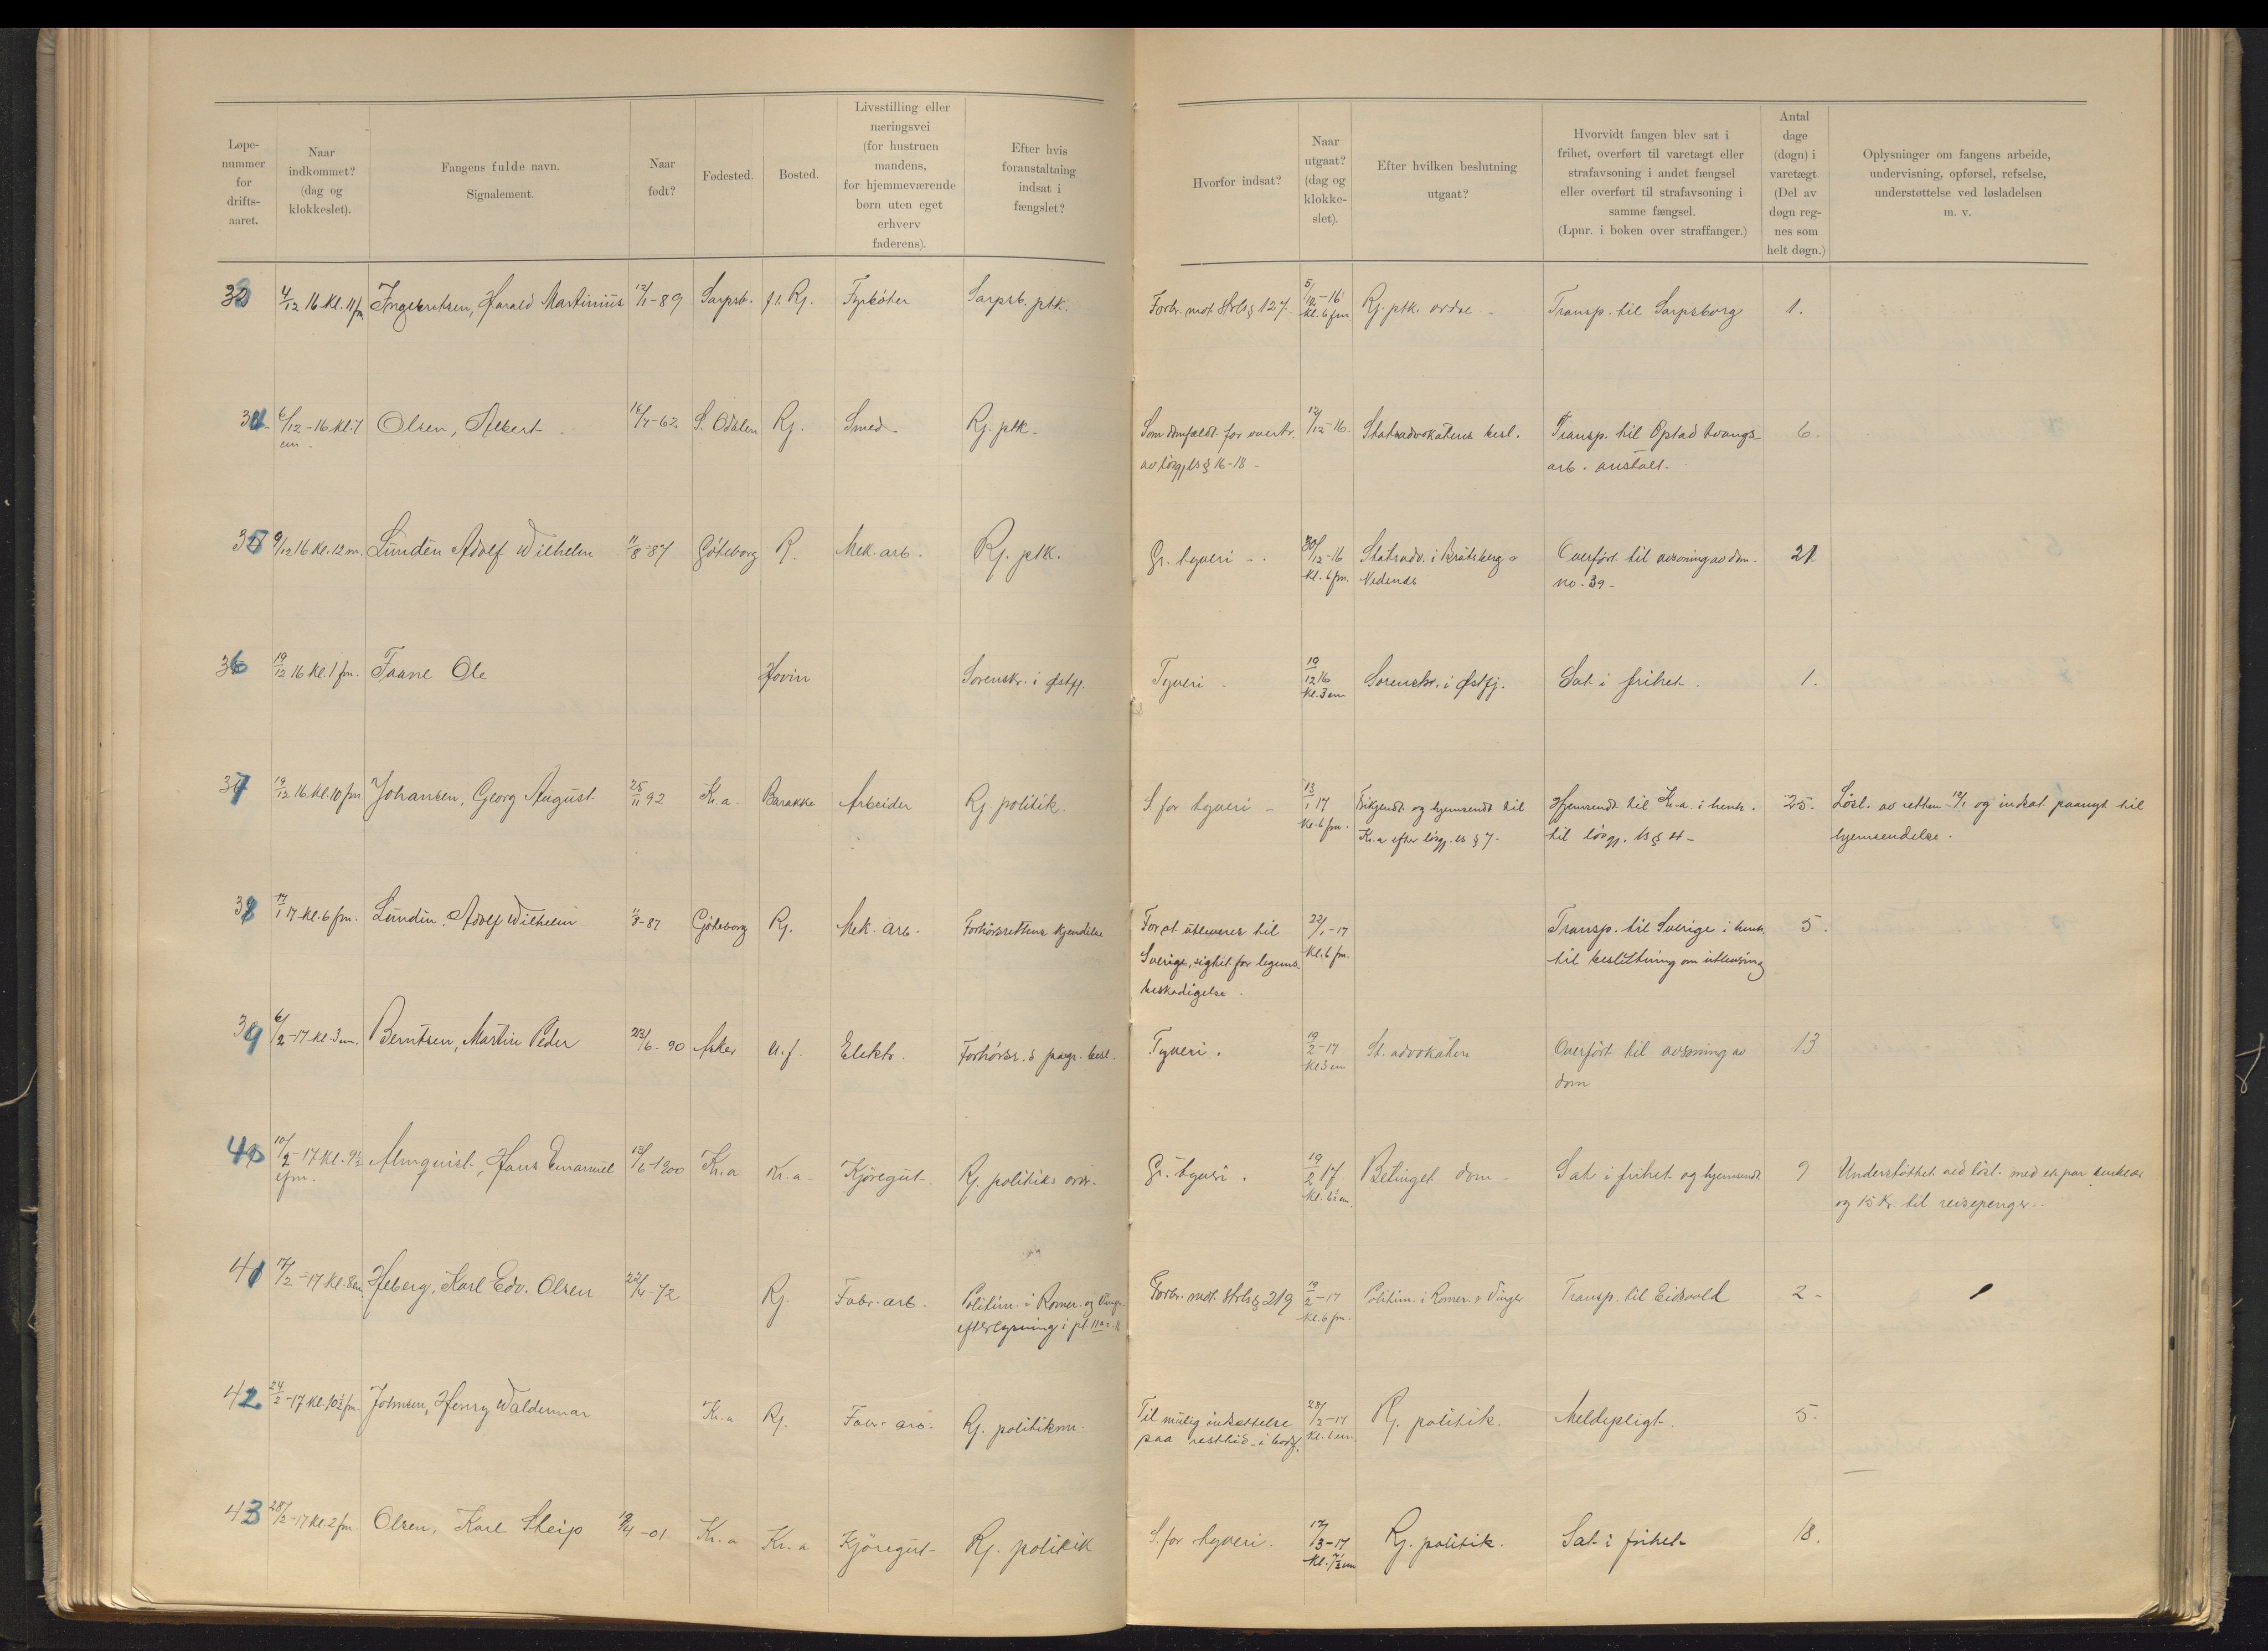 Løpe-
nummer
for
drifts-
aaret.
Naar
indkommet?
(dag og
klokkeslet).
Fangens fulde navn.
Signalement.
Naar
født?
Fødested.
Bosted.
Livsstilling eller
næringsvei
(for hustruen
mandens,
for hjemmeværende
børn uten eget
erhverv
faderens).
Efter hvis
foranstaltning
indsat i
fængslet?
Hvorfor indsat?
Naar
utgaat?
(dag og
klokke-
slet).
Efter hvilken beslutning
utgaat?
Hvorvidt fangen blev sat i
frihet, overført til varetægt eller
strafavsoning i andet fængsel
eller overført til strafavsoning i
samme fængsel.
(Lpnr. i boken over straffanger.)
Antal
dage
(døgn) i
varetægt.
(Del av
døgn reg-
nes som
helt døgn.)
Oplysninger om fangens arbeide,
undervisning, opførsel, refselse,
understøttelse ved løsladelsen
m. v.
4/12 16 Kl. 11 fm Ingebritsen, Harald Martinius 12/1-89 Sarpsb. f.t. Rj. Fyrbøter Sarpsb. ptk. Forbr. mot Strls § 127. 5/12-16 Kl. 6 fm Rj. ptk. ordre - Transp. til Sarpsborg 1.
6/12-16 Kl. 7 em - Olsen, Albert 16/7-62 S. Odalen Rj. Smed Rj. ptk. Som domfældt for overtr. 12/12-16. Statsadvokatens besl. Transp. til Opstad tvangs- 6.
av løsgj.ls § 16-18 - arb. anstalt.
35 9/12 16 Kl. 12 m. Lundin Adolf Wilhelm 11/8-87 Göteborg R. Mek. arb. Rj. ptk. Gr. tyveri - 30/12-16 Kl. 6 fm. Statsadv. i Bratsberg o Overført til avsoning av dom - 21
Nedenes no. 39 -
36 19/12 16 Kl. 1 fm. Faane Ole Hovin Sorenskr. i Østfj. Tyveri - 19/12 16 Kl. 3 em Sorenskr. i Østfj. Sat i frihet. 1.
37 19/12 16 Kl. 10 fm Johansen, Georg August 25/11 92 Kr.a. Barakke Arbeider Rj. politik. S. for tyveri - 13/1 17 Kl. 6 fm. Frikjendt og hjemsendt til Hjemsendt til Kr.a. i henh. 25. Løsl. av retten 12/1 og indsat paanyt til
Kr.a efter løsgj. ls § 7. til løsgj. ls § 4 - hjemsendelse.
38 17/1 17 Kl. 6 fm. Lundin, Adolf Wilhelm 11/8-87 Göteborg Rj. Mek. arb. Forhørsrettens kjendelse For at utleveres til 22/1-17 Kl. 6 fm. Transp. til Sverige i henh. 5.
Sverige, sigtet for legems- til beslutning om utlevering
beskadigelse.
39 6/2-17 Kl. 3 em. Berntsen, Martin Peder 23/6-90 Asker u.f. Elektr. Forhørsr.s besl. Tyveri. 19/2-17 Kl 3 em St. advokaten Overført til avsoning av 13
dom
40 10/2-17 Kl. 9½ efm. Almquist, Hans Emanuel 13/6-1900 Kr.a Kr.a. Kjøregut. Rj. politiks ordr. Gr. tyveri. 19/2 17. Betinget dom - Sat i frihet og hjemsendt 9 Understøttet ved løsl. med et par
og 15 Kr. til reisepenger.
41 17/2-17 Kl. 8 em. Heberg, Karl Edv. Olsen 22/4-72 Rj. Fabr. arb. Politim. i Romer. og Vinger Forbr. mot Strls § 219 19/2-17 Kl. 6 fm. Politim. i Romer. o Vinger Transp. til Eidsvold 2 -
efterlysning i
42 24/2-17 Kl. 10½ fm. Johnsen, Henry Waldemar Kr.a Rj. Fabr. arb. Rj. politikm. Til mulig indsættelse 28/2-17 Rj. politik. Meldepligt. 5.
paa resttid i bodsf.
43 28/2-17 Kl. 2 fm Olsen, Karl Skeip 19/4-01 Kr.a Kr.a Kjøregut Rj. politik S. for tyveri. 17/3-17 Kl. 7½ em Rj. politik. Sat i frihet 18.